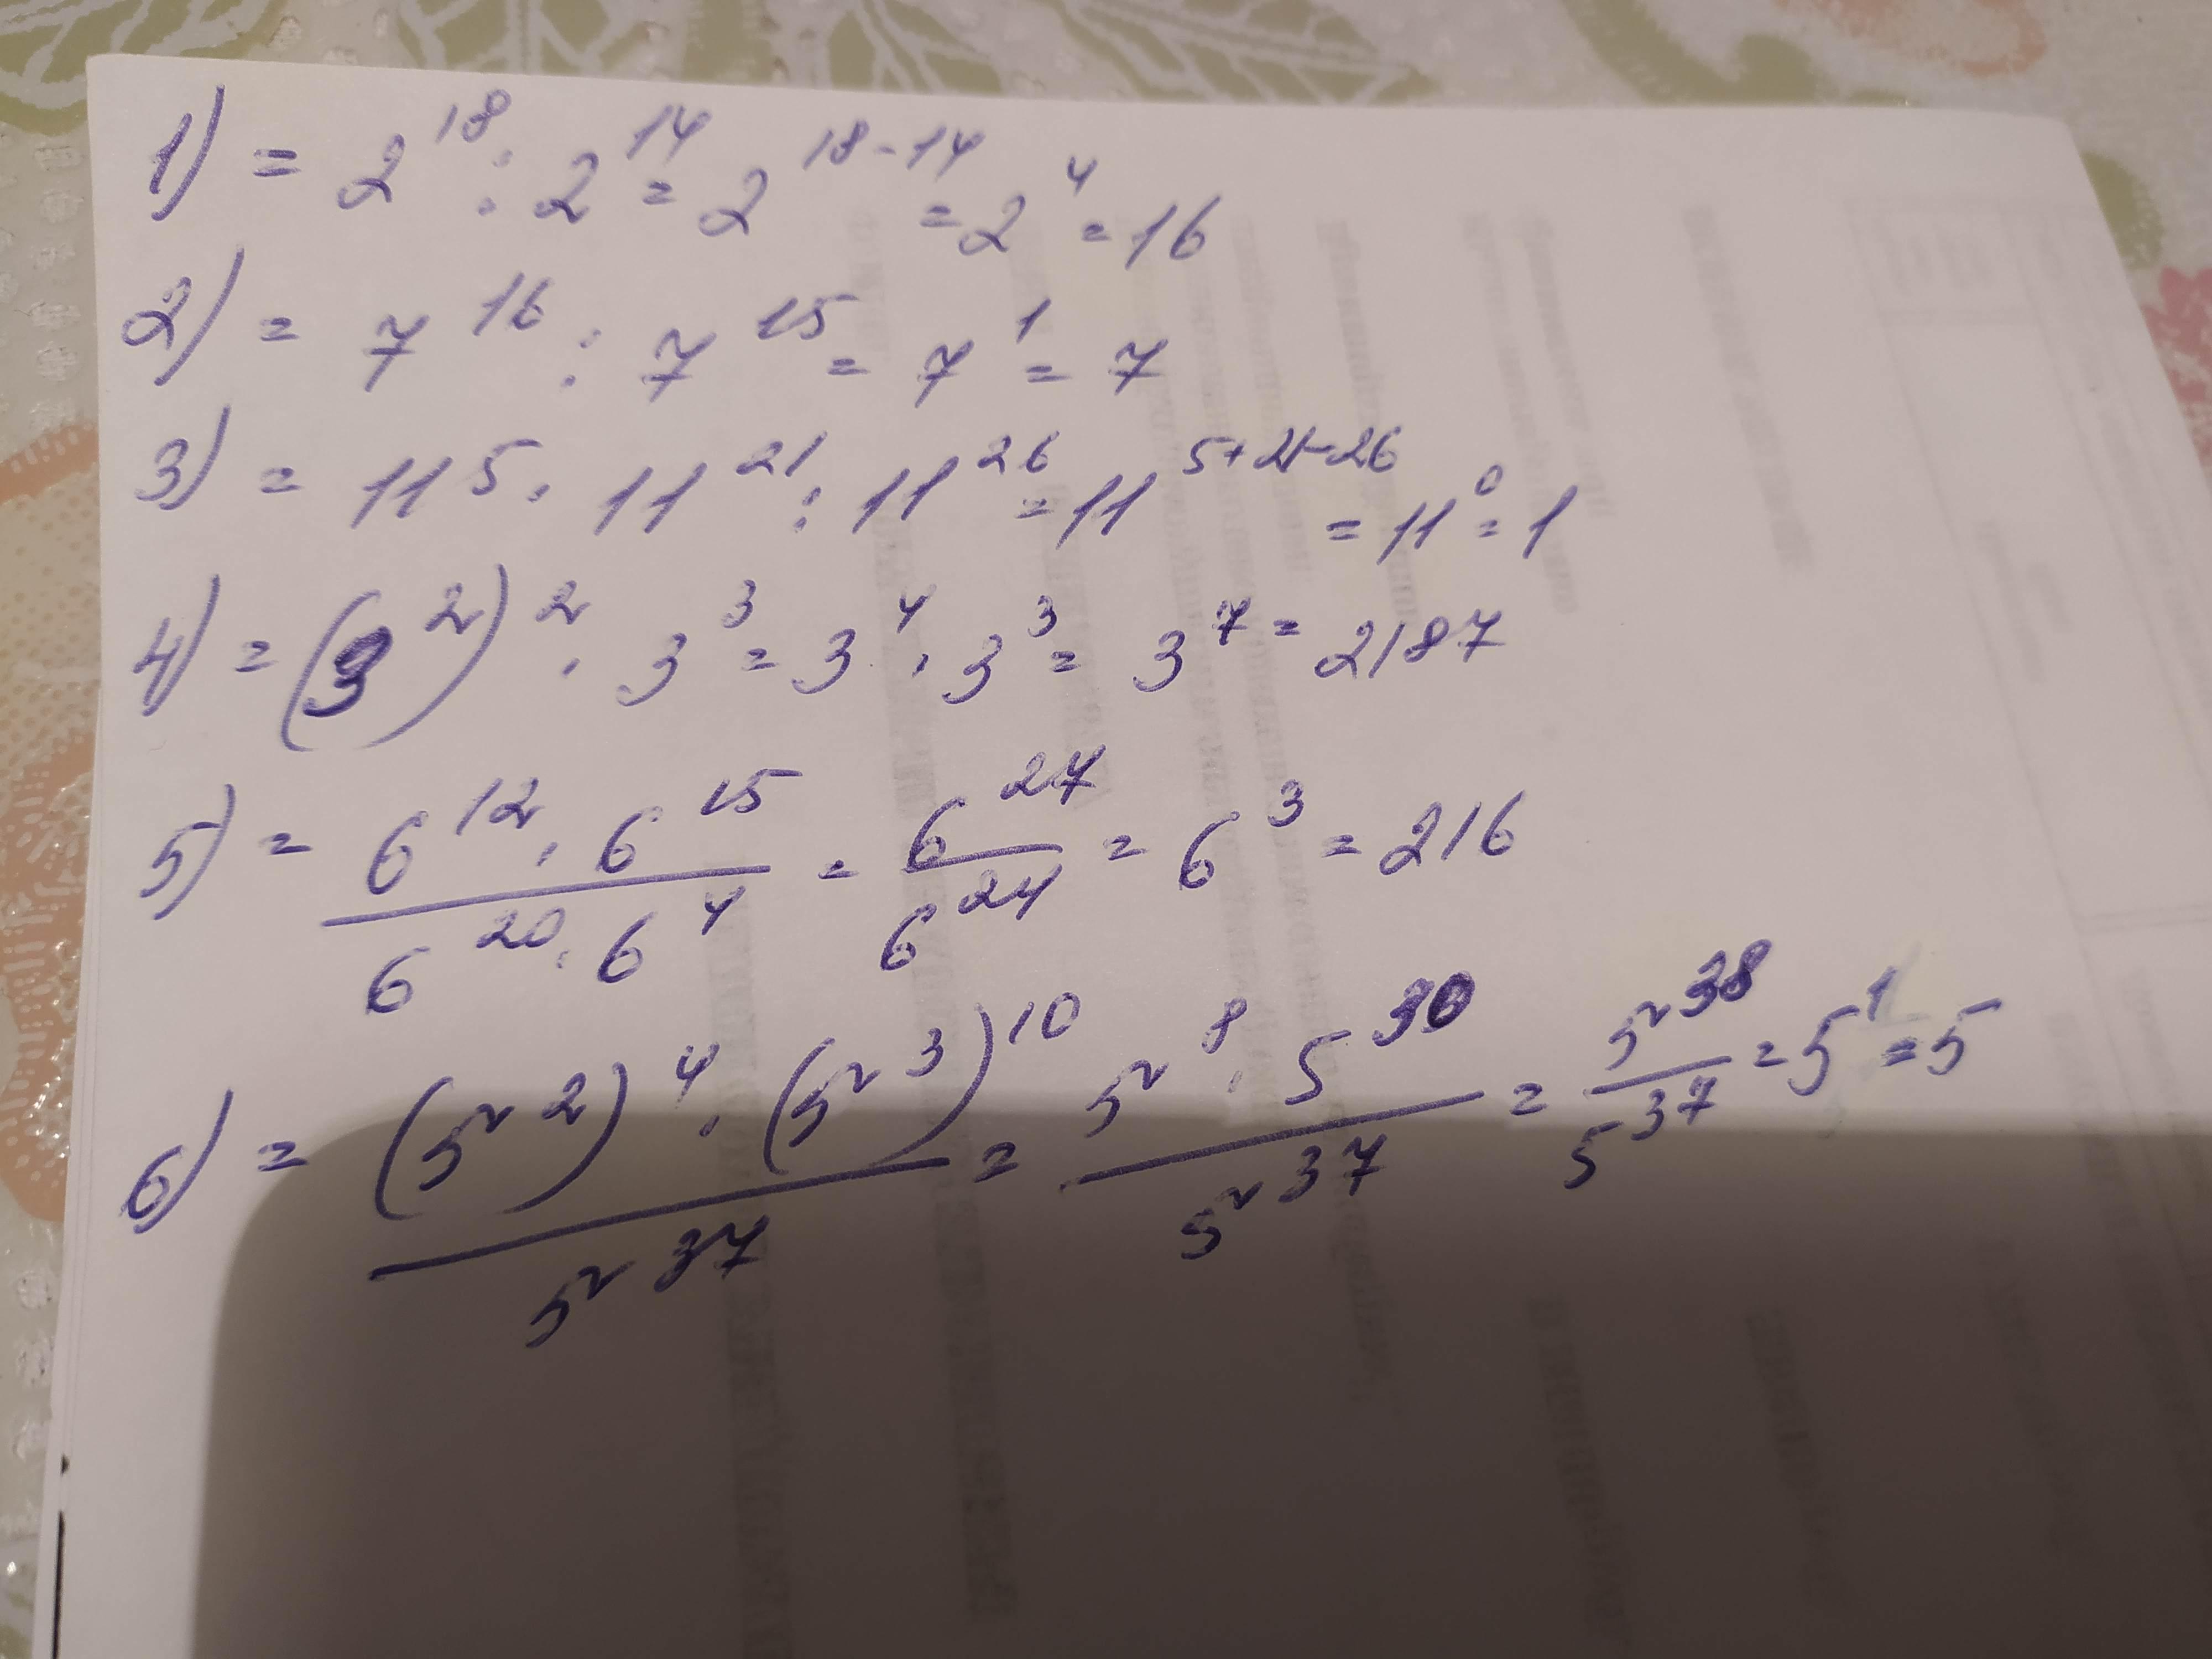 1) = 2^18 : 2^14 = 2^18-14 = 2^4 = 16
2) = 7^16 : 7^15 = 7^1 = 7
3) = 11^5 · 11^21 : 11^26 = 11^5+21-26 = 11^0 = 1
4) = (3^2)^2 · 3^3 = 3^4 · 3^3 = 3^7 = 2187
5) = (6^12 · 6^15)/(6^20 · 6^4) = 6^27/6^24 = 6^3 = 216
6) = ((5^2)^4 · (5^3)^10)/5^37 = (5^8 · 5^30)/5^37 = 5^38/5^37 = 5^1 = 5